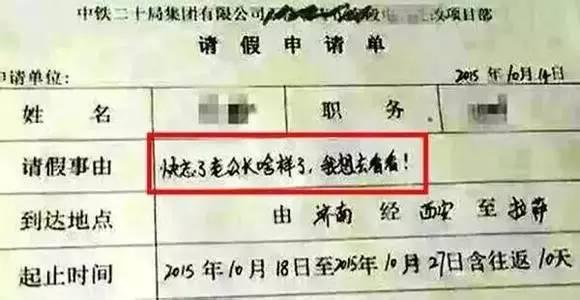 中铁二十局集团有限公司 改项目部
请假申请单
申请单位: 2015年10月14日
姓名 职务
请假事由 快忘了老公长啥样了,我想去看看!
到达地点 由 济南 经 西安 至 拉萨
起止时间 2015年10月18日至2015年10月27日含往返10天